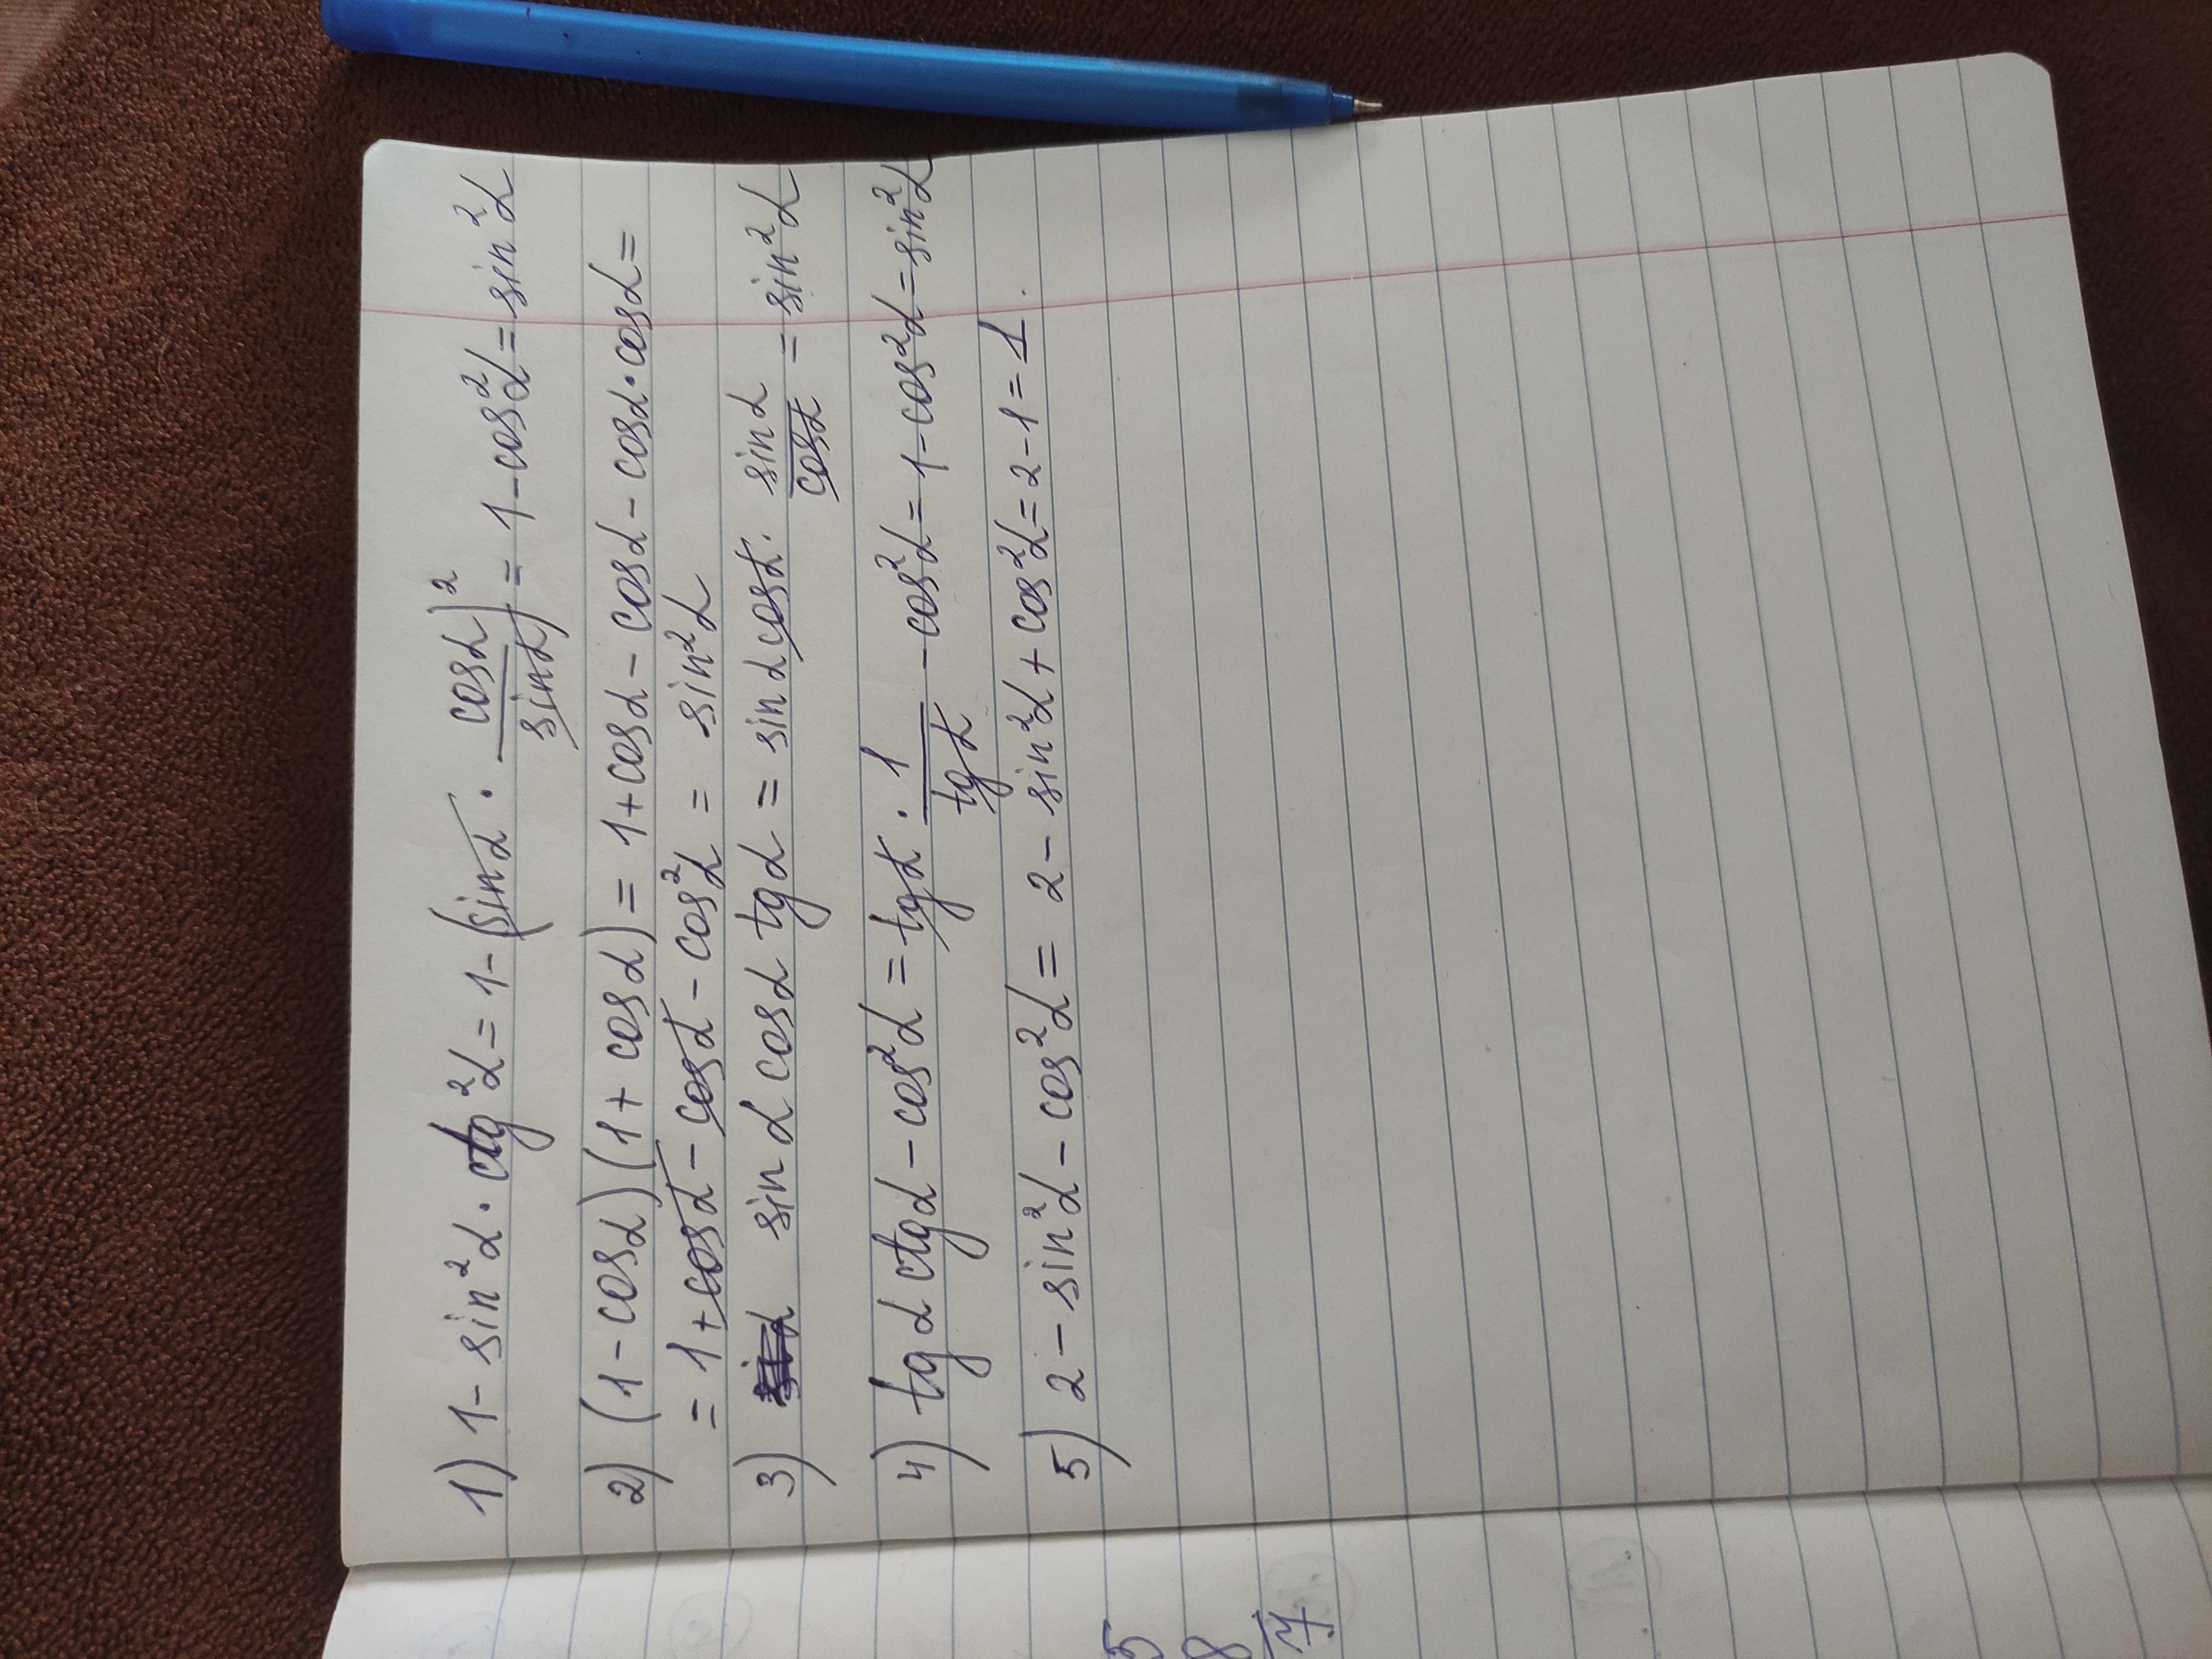 1) 1 - sin²α · ctg²α = 1 - (sinα · cosα/sinα)² = 1 - cos²α = sin²α
2) (1 - cosα)(1 + cosα) = 1 + cosα - cosα - cosα · cosα =
= 1 + cosα - cosα - cos²α = sin²α
3) sinα cosα tgα = sinα cosα · sinα/cosα = sin²α
4) tgα ctgα - cos²α = tgα · 1/tgα - cos²α = 1 - cos²α = sin²α
5) 2 - sin²α - cos²α = 2 - sin²α + cos²α = 2 - 1 = 1.
5
8
7